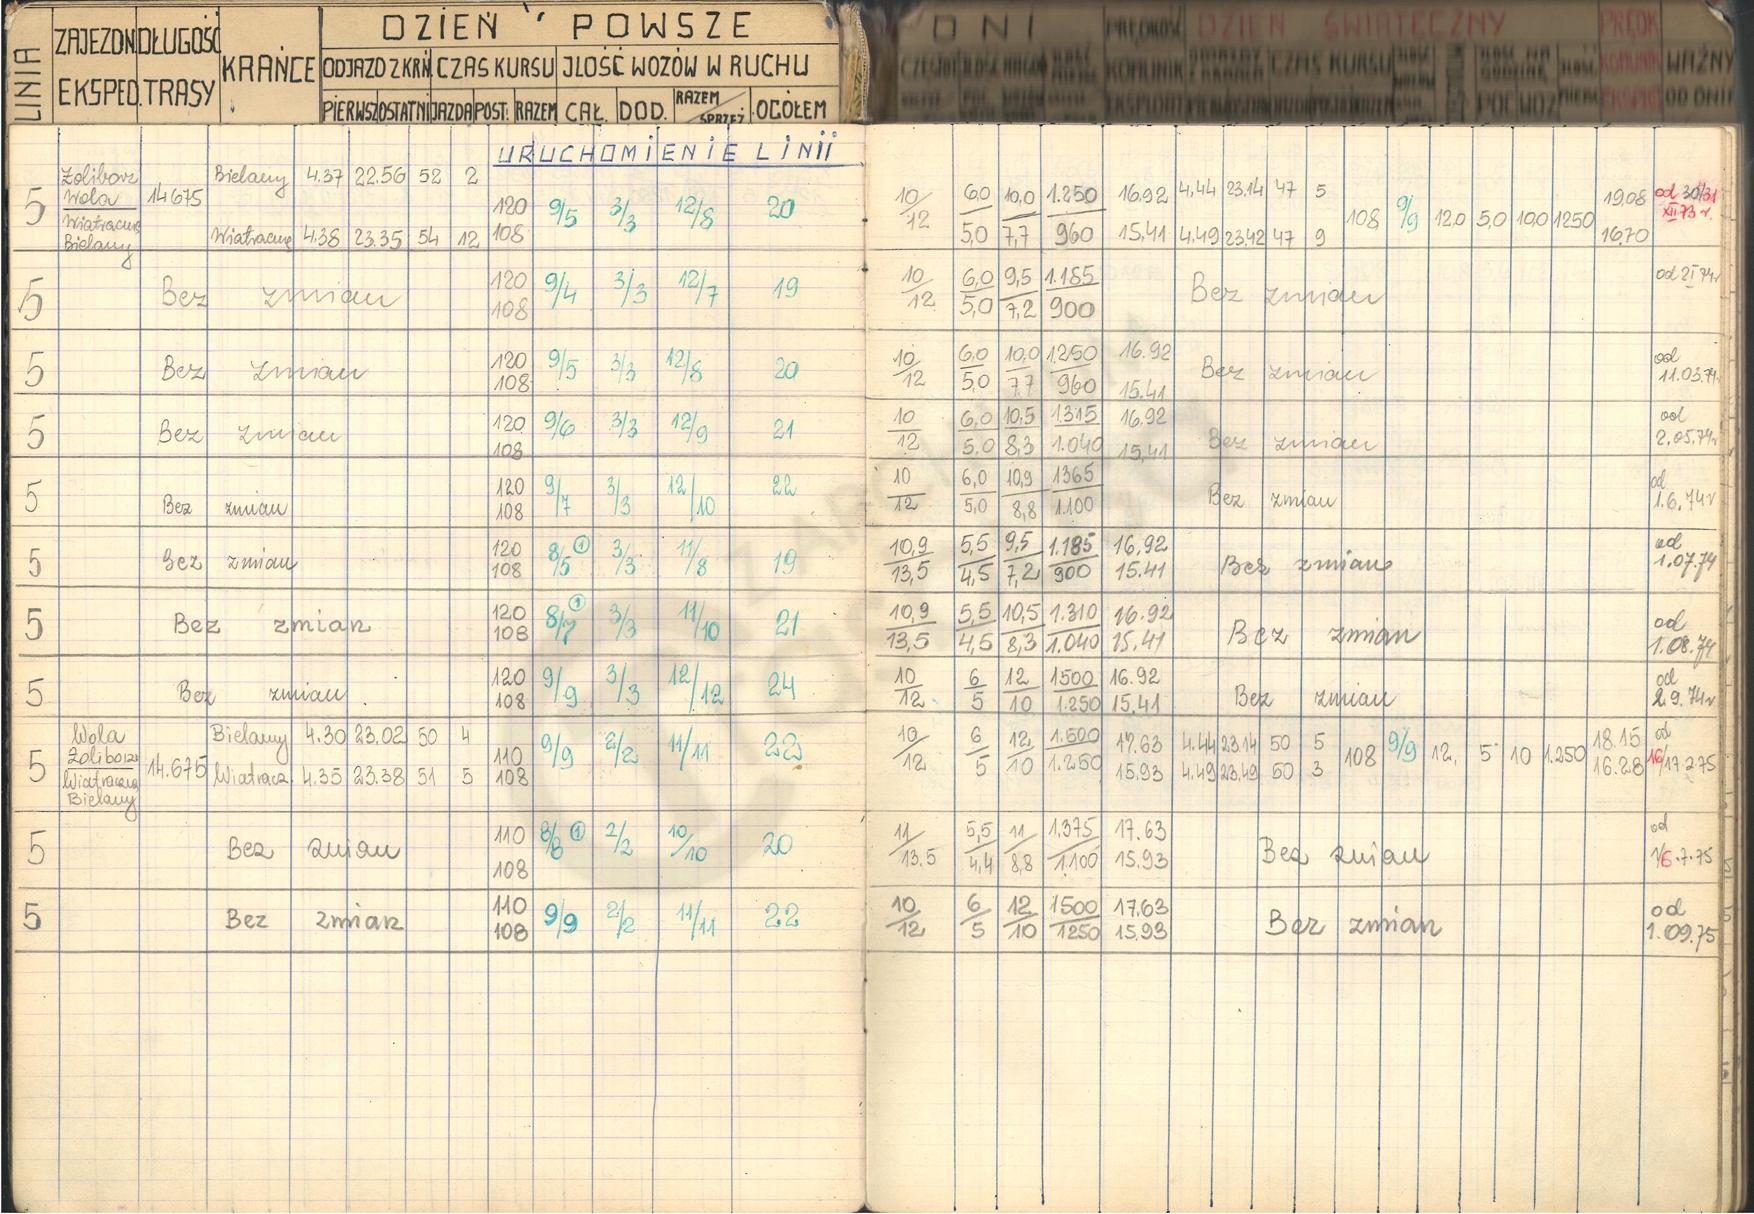 LINIA
ZAJEZDN. EKSPED.
DŁUGOŚĆ TRASY
KRAŃCE
DZIEŃ POWSZE
ODJAZD Z KRŃ. CZAS KURSU JLOŚĆ WOZÓW W RUCHU
PIERWSZ OSTATNI JAZDA POST. RAZEM CAŁ. DOD. RAZEM/SPRZĘŻ OGÓŁEM
DNI PRĘDKOŚĆ DZIEŃ ŚWIĄTECZNY PRĘDK
KOMUNIK CZAS KURSU KOMUNIK WAŻNY
EKSPLOAT POC WOZ EKSPLO OD DNIA
URUCHOMIENIE LINII
5 Żoliborz Wola Wiatraczna Bielany 14675
Bielany 4.37 22.56 52 2
Wiatraczna 4.38 23.35 54 12
120 108 9/5 3/3 12/8 20
10/12 6,0/5,0 10,0/7,7 1.250/960 16.92 15.41
4.44 23.14 47 5
4.49 23.42 47 9
108 9/9 12,0 5,0 10,0 1250 19,08 16.70 od 30/31 XII 73 r.
5 Bez zmian 120 108 9/4 3/3 12/7 19
10/12 6,0/5,0 9,5/7,2 1.185/900 Bez zmian od 2 I 74r
5 Bez zmian 120 108 9/5 3/3 12/8 20
10/12 6,0/5,0 10,0/7,7 1.250/960 16.92 15.41 Bez zmian od 11.03.74
5 Bez zmian 120 108 9/6 3/3 12/9 21
10/12 6,0/5,0 10,5/8,3 1315/1.040 16.92 15,41 Bez zmian od 2.05.74r
5 Bez zmian 120 108 9/7 3/3 12/10 22
10/12 6,0/5,0 10,9/8,8 1365/1.100 Bez zmian od 1.6.74r
5 Bez zmian 120 108 8/5 ① 3/3 11/8 19
10,9/13,5 5,5/4,5 9,5/7,2 1.185/900 16,92 15.41 Bez zmian od 1.07.74
5 Bez zmian 120 108 8/7 ① 3/3 11/10 21
10,9/13,5 5,5/4,5 10,5/8,3 1.310/1.040 16.92 15.41 Bez zmian od 1.08.74
5 Bez zmian 120 108 9/9 3/3 12/12 24
10/12 6/5 12/10 1500/1.250 16.92 15,41 Bez zmian od 2.9.74r
5 Wola Żoliborz Wiatraczna Bielany 14.675
Bielany 4.30 23.02 50 4
Wiatracz. 4.35 23.38 51 5
110 108 9/9 2/2 11/11 22
10/12 6/5 12/10 1.500/1.250 17.63 15,93
4.44 23.14 50 5
4.49 23.49 50 3
108 9/9 12, 5 10 1.250 18.15 16.28 od 16/17.2.75
5 Bez zmian 110 108 8/8 ① 2/2 10/10 20
11/13.5 5,5/4,4 11/8,8 1.375/1.100 17.63 15.93 Bez zmian od 1/6.7.75
5 Bez zmian 110 108 9/9 2/2 11/11 22
10/12 6/5 12/10 1500/1250 17.63 15.93 Bez zmian od 1.09.75